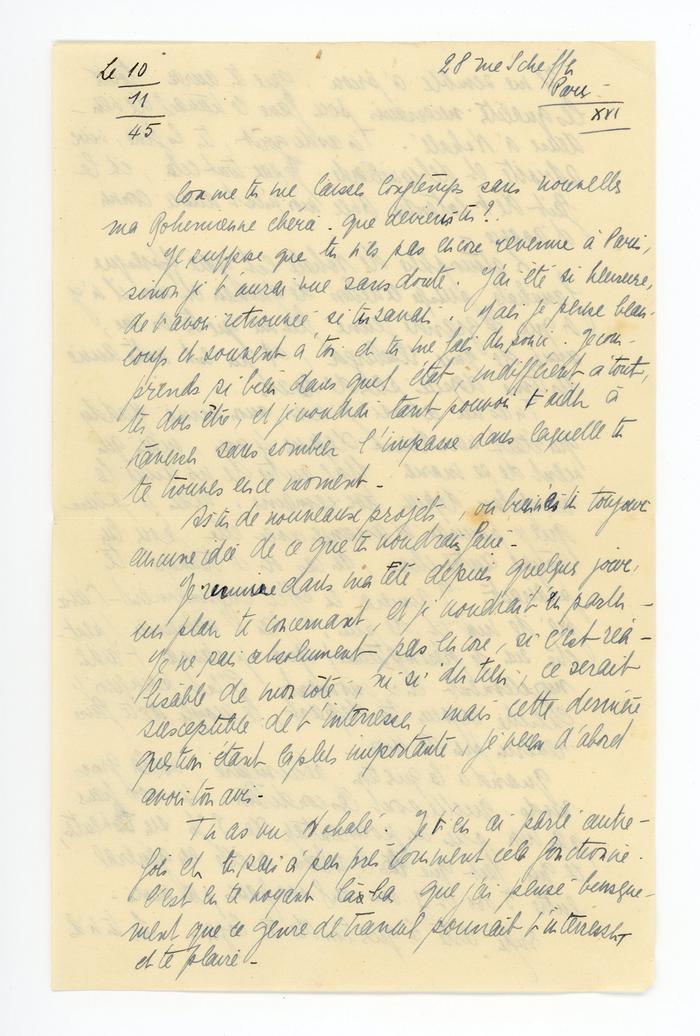 Le 10
11
45
28 rue Scheffer
Paris
XVI
Comme tu me laisses longtemps sans nouvelles
ma Bohemienne chérie. que deviens tu?.
Je suppose que tu n'es pas encore revenue à Paris,
sinon je t'aurai vue sans doute. J'ai été si heureuse,
de t'avoir retrouvée si tu savais. Mais je pense beau-
coup et souvent à toi et tu me fais du souci. Je com-
prends si bien dans quel état, indifférent à tout,
tu dois être, et je voudrai tant pouvoir t'aider à
traverser sans sombrer l'impasse dans laquelle tu
te trouves en ce moment -
As tu de nouveaux projets, ou tu toujours
aucune idée de ce que tu voudrais faire -
Je rumine dans ma tête depuis quelques jours,
un plan te concernant, et je voudrait t'en parler -
Je ne sais absolument pas encore, si c'est réa-
lisable de mon côté, ni si du tien, ce serait
susceptible de t'intéresser, mais cette dernière
question étant la plus importante, je veux d'abord
avoir ton avis -
Tu as vu Nohalé. Je t'en ai parlé autre-
fois et tu sais à peu près comment cela fonctionne.
C'est en te voyant là ba que j'ai pensé brusque-
ment que ce genre de travail pourrait t'intéresser
et te plaire -